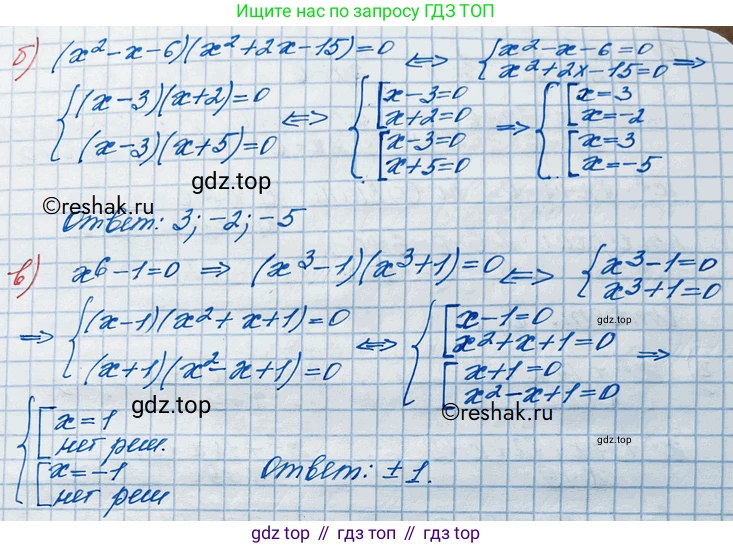 Ищите нас по запросу ГДЗ ТОП
б) (x²-x-6)(x²+2x-15)=0 ⟺ { x²-x-6=0
x²+2x-15=0 ⟹
{ (x-3)(x+2)=0
(x-3)(x+5)=0 ⟺ { [ x-3=0
x+2=0
[ x-3=0
x+5=0 ⟹ { [ x=3
x=-2
[ x=3
x=-5
gdz.top
©reshak.ru
Ответ: 3; -2; -5
в) x⁶-1=0 ⟹ (x³-1)(x³+1)=0 ⟺ { x³-1=0
x³+1=0
gdz top
⟹ { (x-1)(x²+x+1)=0
(x+1)(x²-x+1)=0 ⟺ { [ x-1=0
x²+x+1=0
[ x+1=0
x²-x+1=0 ⟹
gdz.top
©reshak.ru
gdz top
{ [ x=1
нет реш.
[ x=-1
нет реш
Ответ: ±1.
gdz top // гдз топ // gdz.top // гдз топ